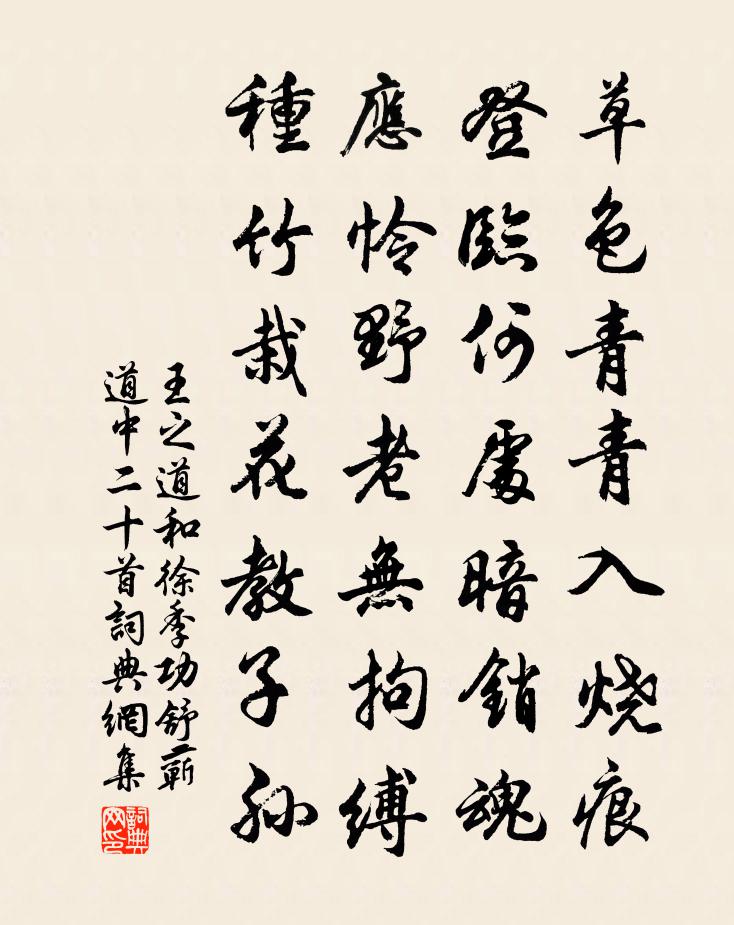 草色青青入烧痕
登臨何處暗銷魂
應憐野老無拘縛
種竹栽花教子孫
王之道和徐季功舒蘄
道中二十首詞典網集
詞典
网印